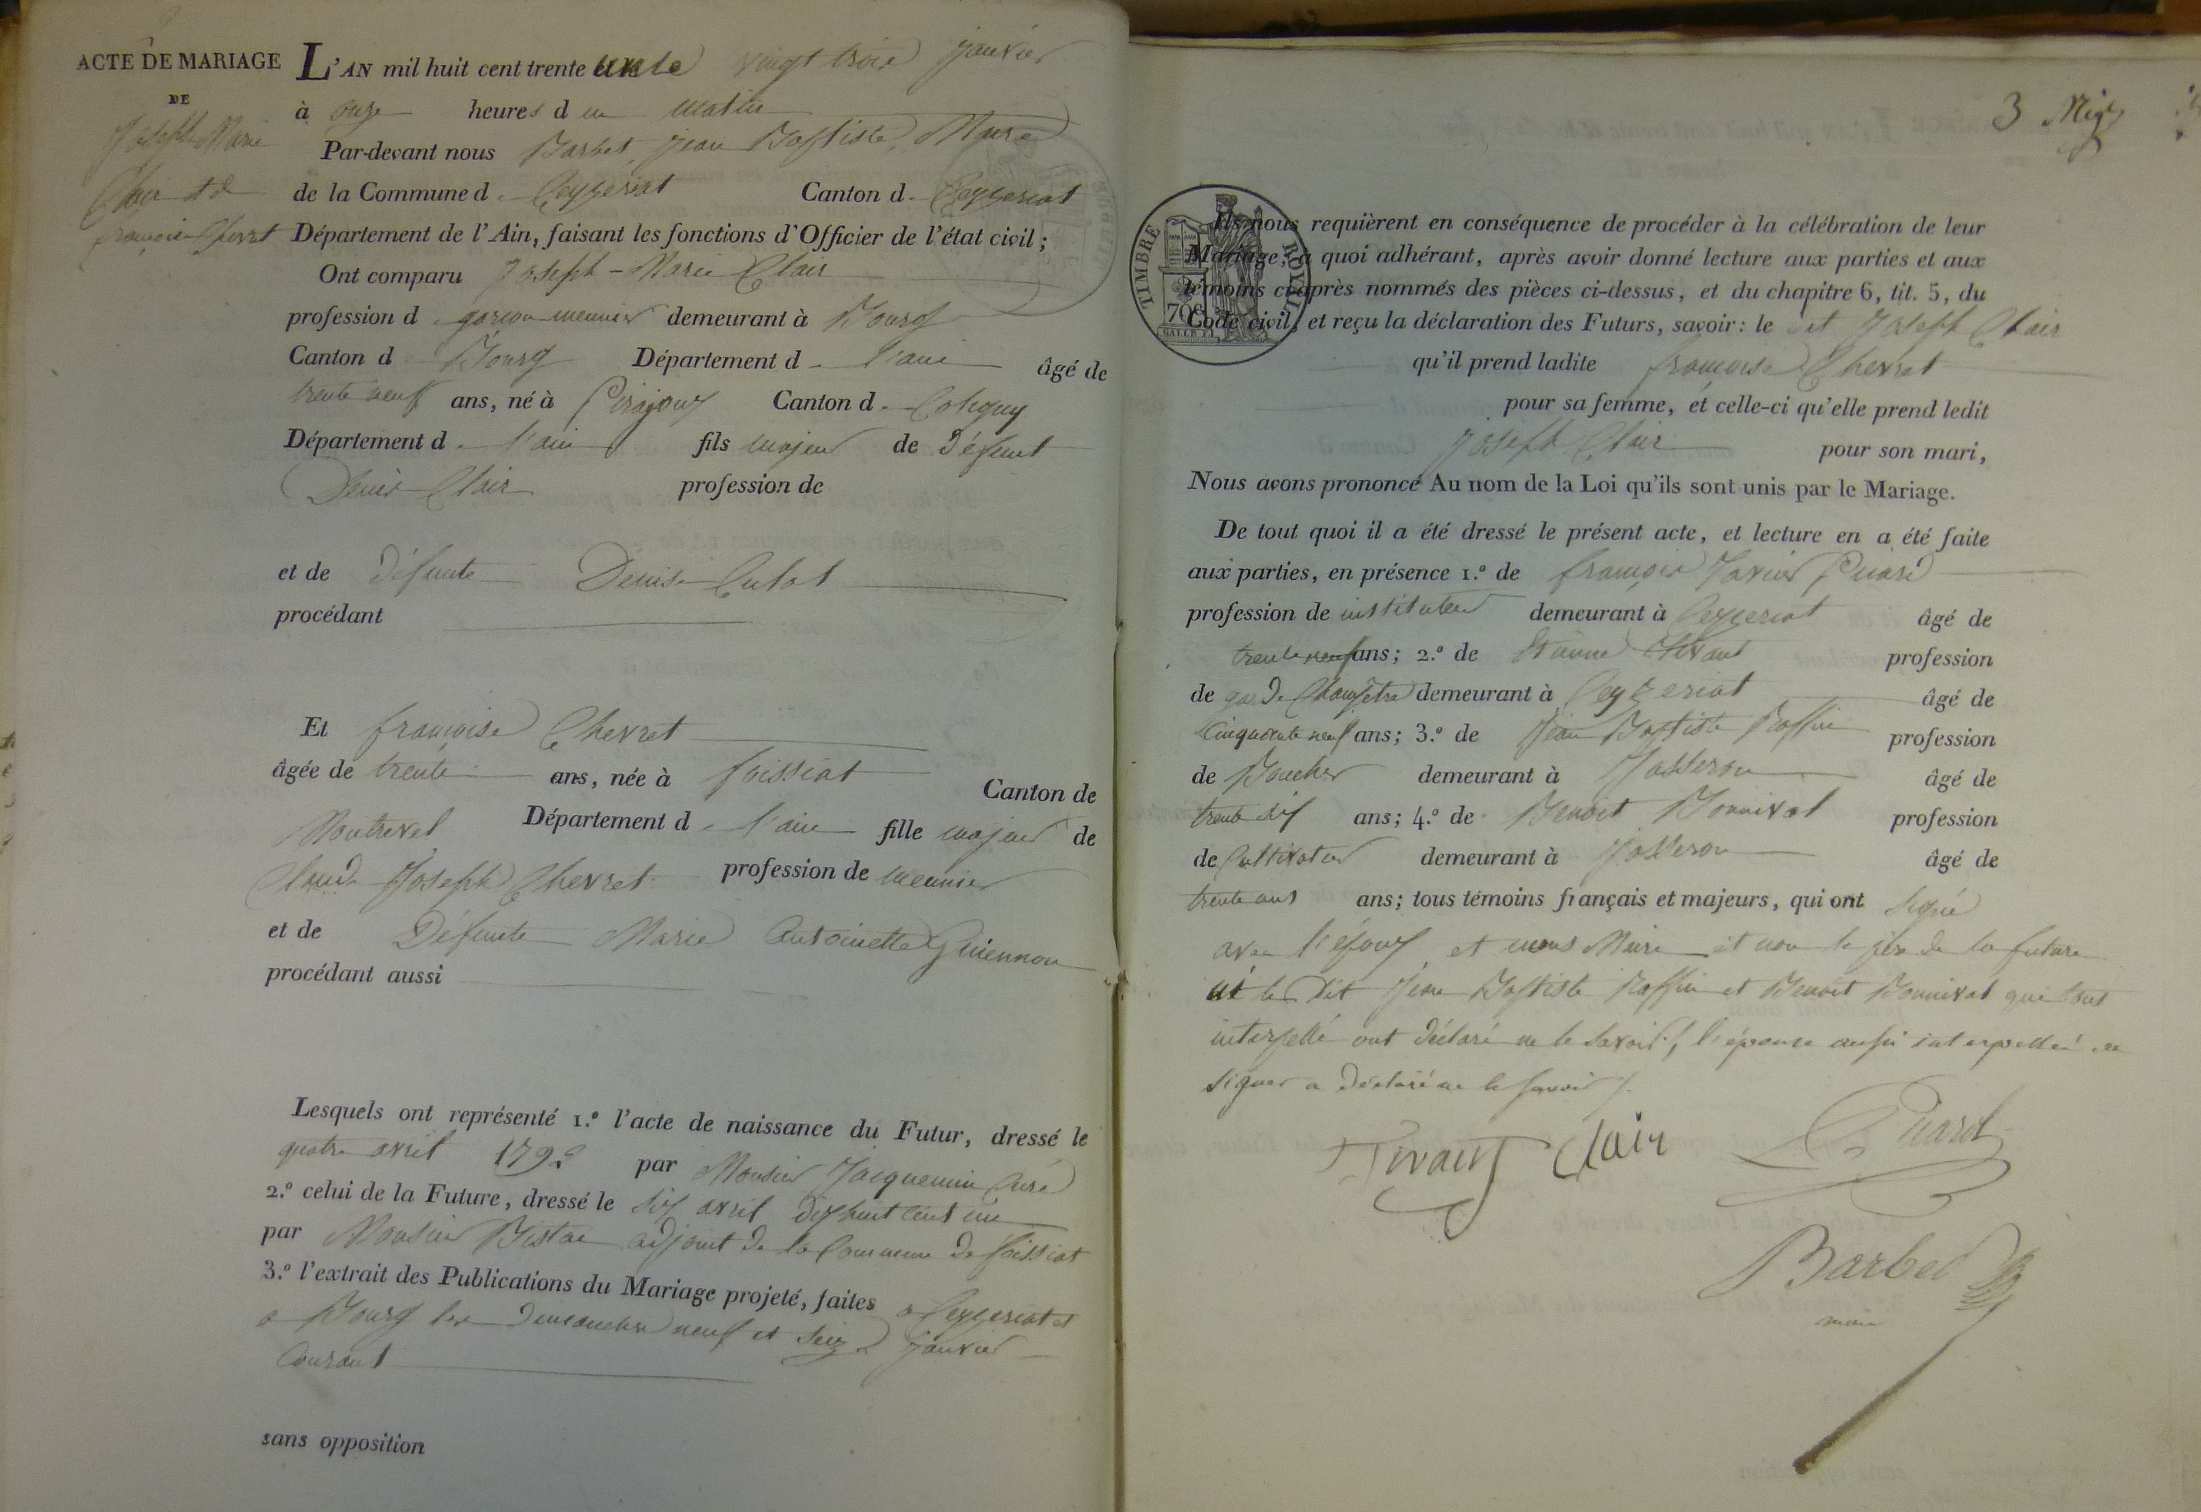 ACTE DE MARIAGE
DE
Joseph Marie
Clair et de
françoise Chevret
L'AN mil huit cent trente un le vingt trois janvier
à onze heures d u matin
Par-devant nous Barbet, Jean Baptiste, Maire
de la Commune d Ceyzeriat Canton d Ceyzeriat
Département de l'Ain, faisant les fonctions d'Officier de l'état civil;
Ont comparu Joseph-Marie Clair
profession d garçon meunier demeurant à Bourg
Canton d Bourg Département d l'ain âgé de
trente neuf ans, né à Pirajoux Canton d Coligny
Département d l'ain fils majeur de défunt
Denis Clair profession de
et de défunte Denise
procédant
Et françoise Chevret
âgée de trente ans, née à foissiat Canton de
Montrevel Département d l'ain fille majeur de
Claude Joseph Chevret profession de meunier
et de Défunte Marie Antoinette Guiennon
procédant aussi
Lesquels ont représenté 1.º l'acte de naissance du Futur, dressé le
quatre avril 1792 par Monsieur Jacquemin Curé
2.º celui de la Future, dressé le six avril dix huit cent un
par Monsieur adjoint de la Commune de foissiat
3.º l'extrait des Publications du Mariage projeté, faites a Ceyzeriat et
a Bourg les dimanches neuf et seize janvier
Courant
sans opposition
3 Mige
TIMBRE ROYAL
70c
Ils nous requièrent en conséquence de procéder à la célébration de leur
Mariage; à quoi adhérant, après avoir donné lecture aux parties et aux
témoins ci-après nommés des pièces ci-dessus, et du chapitre 6, tit. 5, du
Code civil, et reçu la déclaration des Futurs, savoir: le dit Joseph Clair
qu'il prend ladite françoise Chevret
pour sa femme, et celle-ci qu'elle prend ledit
Joseph Clair pour son mari,
Nous avons prononcé Au nom de la Loi qu'ils sont unis par le Mariage.
De tout quoi il a été dressé le présent acte, et lecture en a été faite
aux parties, en présence 1.º de françois Xavier
profession de instituteur demeurant à Ceyzeriat âgé de
trente neuf ans; 2.º de profession
de garde Champêtre demeurant à Ceyzeriat âgé de
Cinquante neuf ans; 3.º de Jean Baptiste Raffin profession
de Boucher demeurant à Jasseron âgé de
trente six ans; 4.º de Benoit Bonnivat profession
de Cultivateur demeurant à Jasseron âgé de
trente ans ans; tous témoins français et majeurs, qui ont signé
avec l'époux et nous Maire et non le père de la future
ni le dit Jean Baptiste Raffin et Benoit Bonnivat qui tout
interpellé ont déclaré ne le savoir, l'épouse aussi interpellée de
signer a déclaré ne le savoir
Clair
Barbet
maire